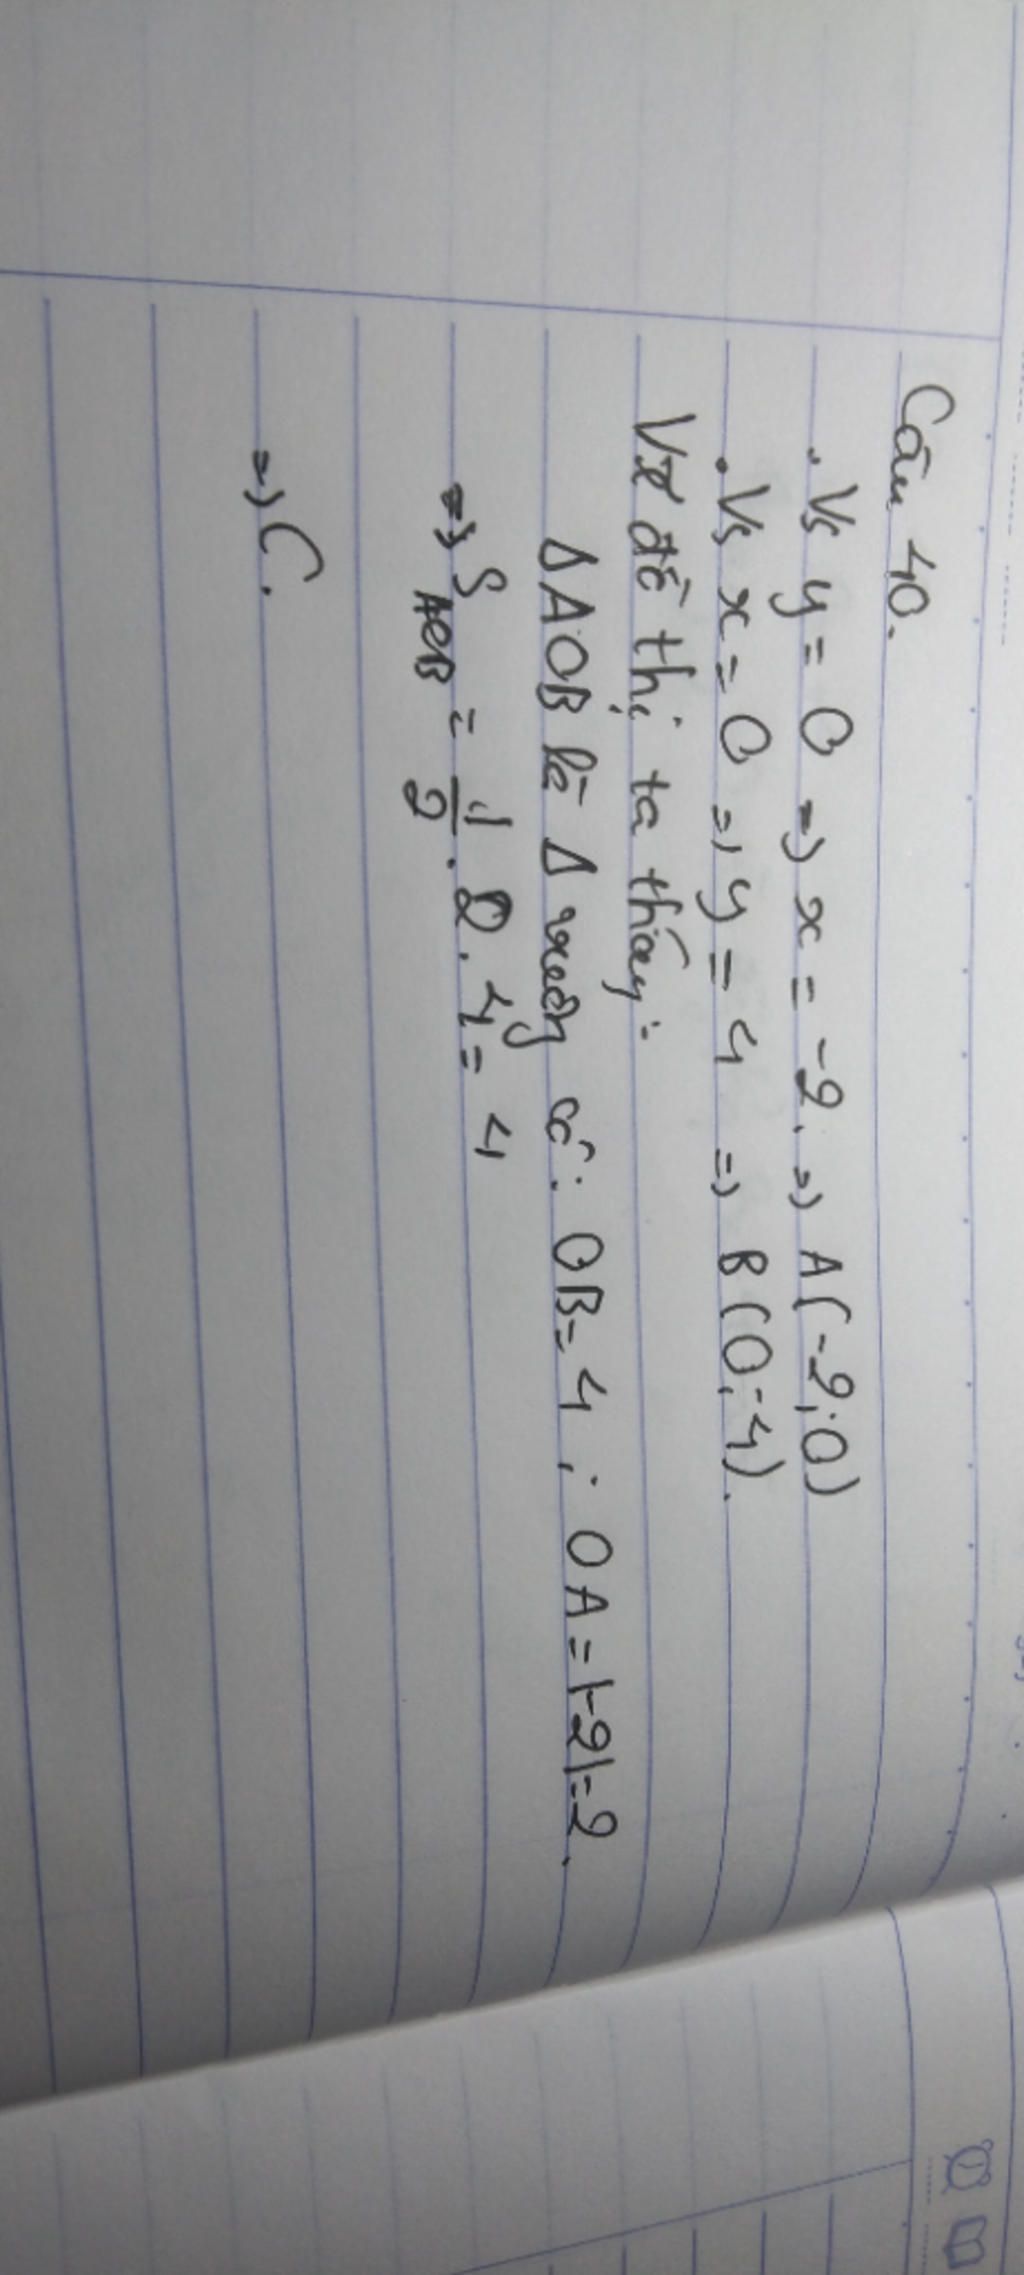 Câu 40.
. Vs y = 0 => x = -2. => A(-2;0)
. Vs x = 0 => y = 4 => B(0;4).
Vẽ đồ thị ta thấy:
Δ AOB là Δ vuông có: OB = 4 ; OA = |-2| = 2.
=> S AOB = 1/2 . 2 . 4 = 4
=> C.